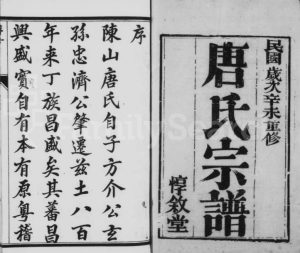 民國歲次辛未重修
唐氏宗譜
惇敘堂
序
陳山唐氏自子方介公玄
孫忠濟公肇遷茲土八百
年來丁族昌盛矣其蕃昌
興盛實自有本有原粵稽